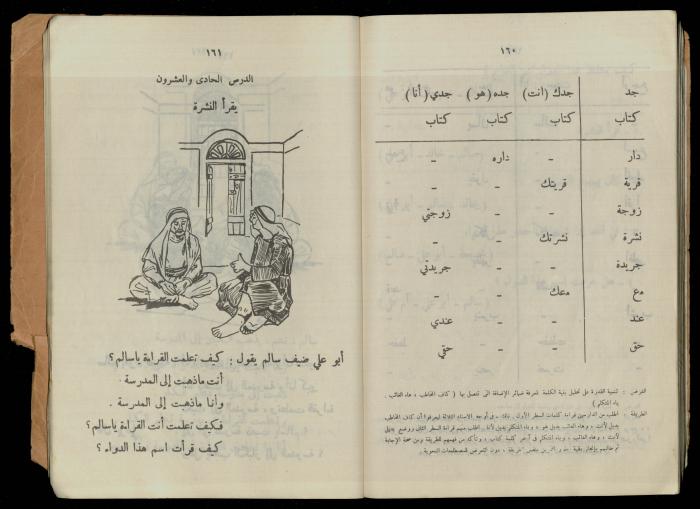 ١٦٠
جد جدك (انت) جده (هو) جدي (أنا)
كتاب كتاب كتاب كتاب
دار - داره -
قرية قريتك - -
زوجة - - زوجتي
نشرة نشرتك - -
جريدة - - جريدتي
مع معك - -
عند - - عندي
حق - - حقي
الغرض : تنمية القدرة على تحليل بنية الكلمة لمعرفة ضمائر الإضافة التي تتصل بها ( كاف المخاطب ، هاء الغائب ،
ياء المتكلم )
الطريقة : اطلب من الدارسين قراءة كلمات السطر الأول
١٦١
الدرس الحادى والعشرون
يقرأ النشرة
أبو علي ضيف سالم يقول : كيف تعلمت القراءة ياسالم ؟
أنت ماذهبت إلى المدرسة .
وأنا ماذهبت إلى المدرسة .
فكيف تعلمت أنت القراءة ياسالم ؟
كيف قرأت اسم هذا الدواء ؟